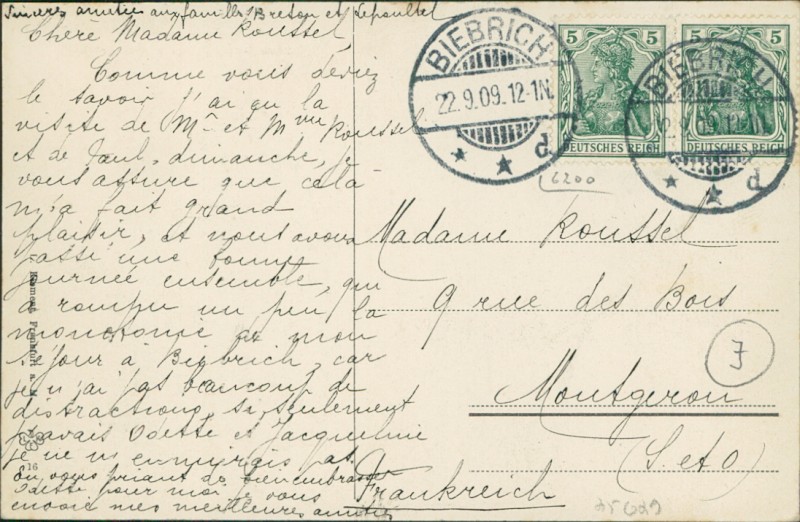 Sincères amitiés aux familles Breton et Lepoultel
Chère Madame Roussel
Comme vous devez
le savoir j'ai eu la
visite de Mr et Mme Roussel
et de Paul, dimanche, je
vous assure que celà
m'a fait grand
plaisir, et nous avons
passé une bonne
journée ensemble, qui
a rompu un peu la
monotonie de mon
séjour à Biebrich, car
je n'ai pas beaucoup de
distractions, si seulement
j'avais Odette et Jacqueline
je ne m'ennuirais pas
En vous priant de bien embrasser
Odette pour moi je vous
envoie mes meilleures amitiés
16
BIEBRICH
22.9.09.12-1N.
d
5 5
DEUTSCHES REICH
5 5
DEUTSCHES REICH
BIEBRICH
d
6200
Madame Roussel
9 rue des Bois
Montgeron
(S et O)
Frankreich
J